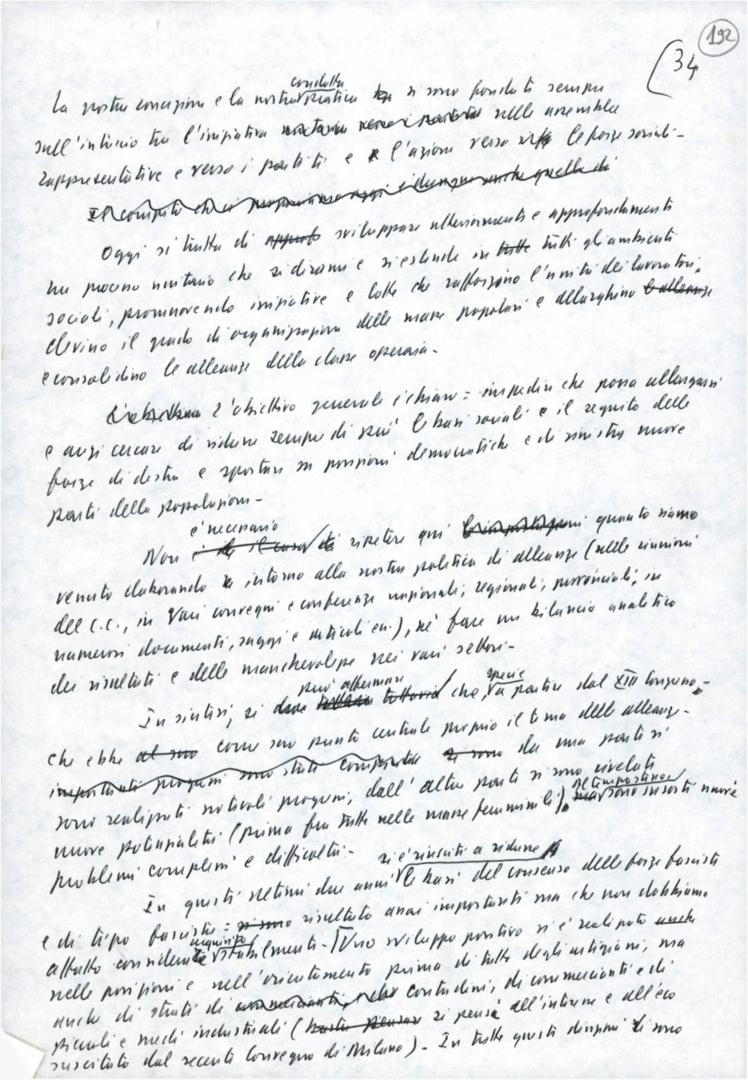 192
(34
condotta
La nostra concezione e la nostra pratica si sono fondate sempre
sull'intreccio tra l'iniziativa nelle assemblee
rappresentative e verso i partiti e l'azione verso le forze sociali-
Il compito che ci oggi è dunque anche quello di
Oggi si tratta di sviluppare ulteriormente e approfonditamente
un processo unitario che si dirami e si estenda in tutte tutti gli ambienti
sociali, promuovendo iniziative e lotte che rafforzino l'unità dei lavoratori,
elevino il grado di organizzazione delle masse popolari e allarghino le alleanze
e consolidino le alleanze della classe operaia-
L'obiettivo L'obiettivo generale è chiaro = impedire che possa allargarsi
e anzi cercare di ridurre sempre di più le basi sociali e il seguito delle
forze di destra e spostare su posizioni democratiche e di sinistra nuove
parti della popolazione-
è necessario
Non è il caso di ripetere qui quanto siamo
venuti elaborando intorno alla nostra politica di alleanze (nelle riunioni
del C.C., in vari convegni e conferenze nazionali, regionali, provinciali, in
numerosi documenti, saggi e articoli ecc.), né fare un bilancio analitico
dei risultati e delle manchevolezze nei vari settori-
può affermare specie
In sintesi, si deve tuttavia che, a partire dal XIII Congresso,-
che ebbe al suo come suo punto centrale proprio il tema delle alleanze-
importanti progressi sono stati compiuti si sono da una parte si
sono realizzati notevoli progressi, dall'altra parte si sono rivelate
nuove potenzialità (prima fra tutte nelle masse femminili), ma sono insorti nuovi
problemi complessi e difficoltà-
si è riusciti a ridurre
In questi ultimi due anni le basi del consenso delle forze fasciste
e di tipo fascista = si sono risultato assai importante ma che non dobbiamo
acquisito
affatto considerare stabilmente- Uno sviluppo positivo si è realizzato anche
nelle posizioni e nell'orientamento prima di tutto degli artigiani, ma
anche di strati di commercianti, contadini, di commercianti e di
piccoli e medi industriali (basta pensare si pensi all'interesse e all'eco
suscitato dal recente Convegno di Milano)- In tutte queste direzioni si sono